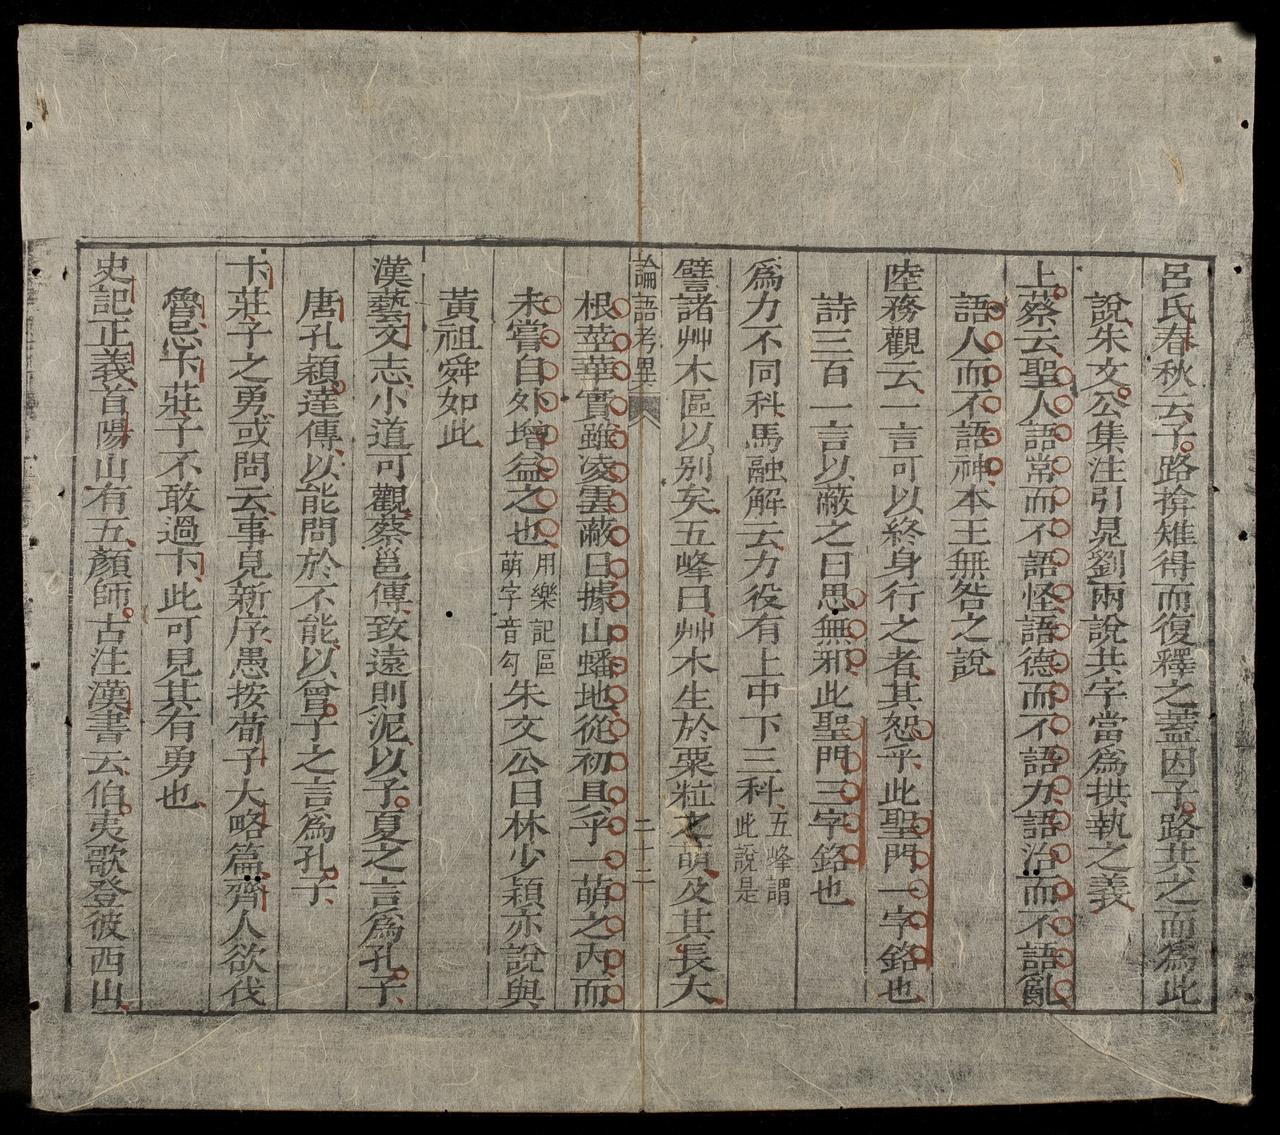 呂氏春秋云子路揜雉得而復釋之蓋因子路共之而爲此
說朱文公集注引晁劉兩說共字當爲拱執之義
上蔡云聖人語常而不語怪語德而不語力語治而不語亂
語人而不語神本王無咎之說
陸務觀云一言可以終身行之者其恕乎此聖門一字銘也
詩三百一言以蔽之曰思無邪此聖門三字銘也
爲力不同科馬融解云力役有上中下三科五峰謂
此說是
譬諸艸木區以別矣五峰曰艸木生於粟粒之萌及其長大
論語考異
二十二
根莖華實雖凌雲蔽日據山蟠地從初具乎一萌之內而
未嘗自外增益之也用樂記區
萌字音勾朱文公曰林少穎亦說與
黃祖舜如此
漢藝文志小道可觀蔡邕傳致遠則泥以子夏之言爲孔子
唐孔穎達傳以能問於不能以曾子之言爲孔子
卞莊子之勇或問云事見新序愚按荀子大略篇齊人欲伐
魯忌卞莊子不敢過卞此可見其有勇也
史記正義首陽山有五顏師古注漢書云伯夷歌登彼西山